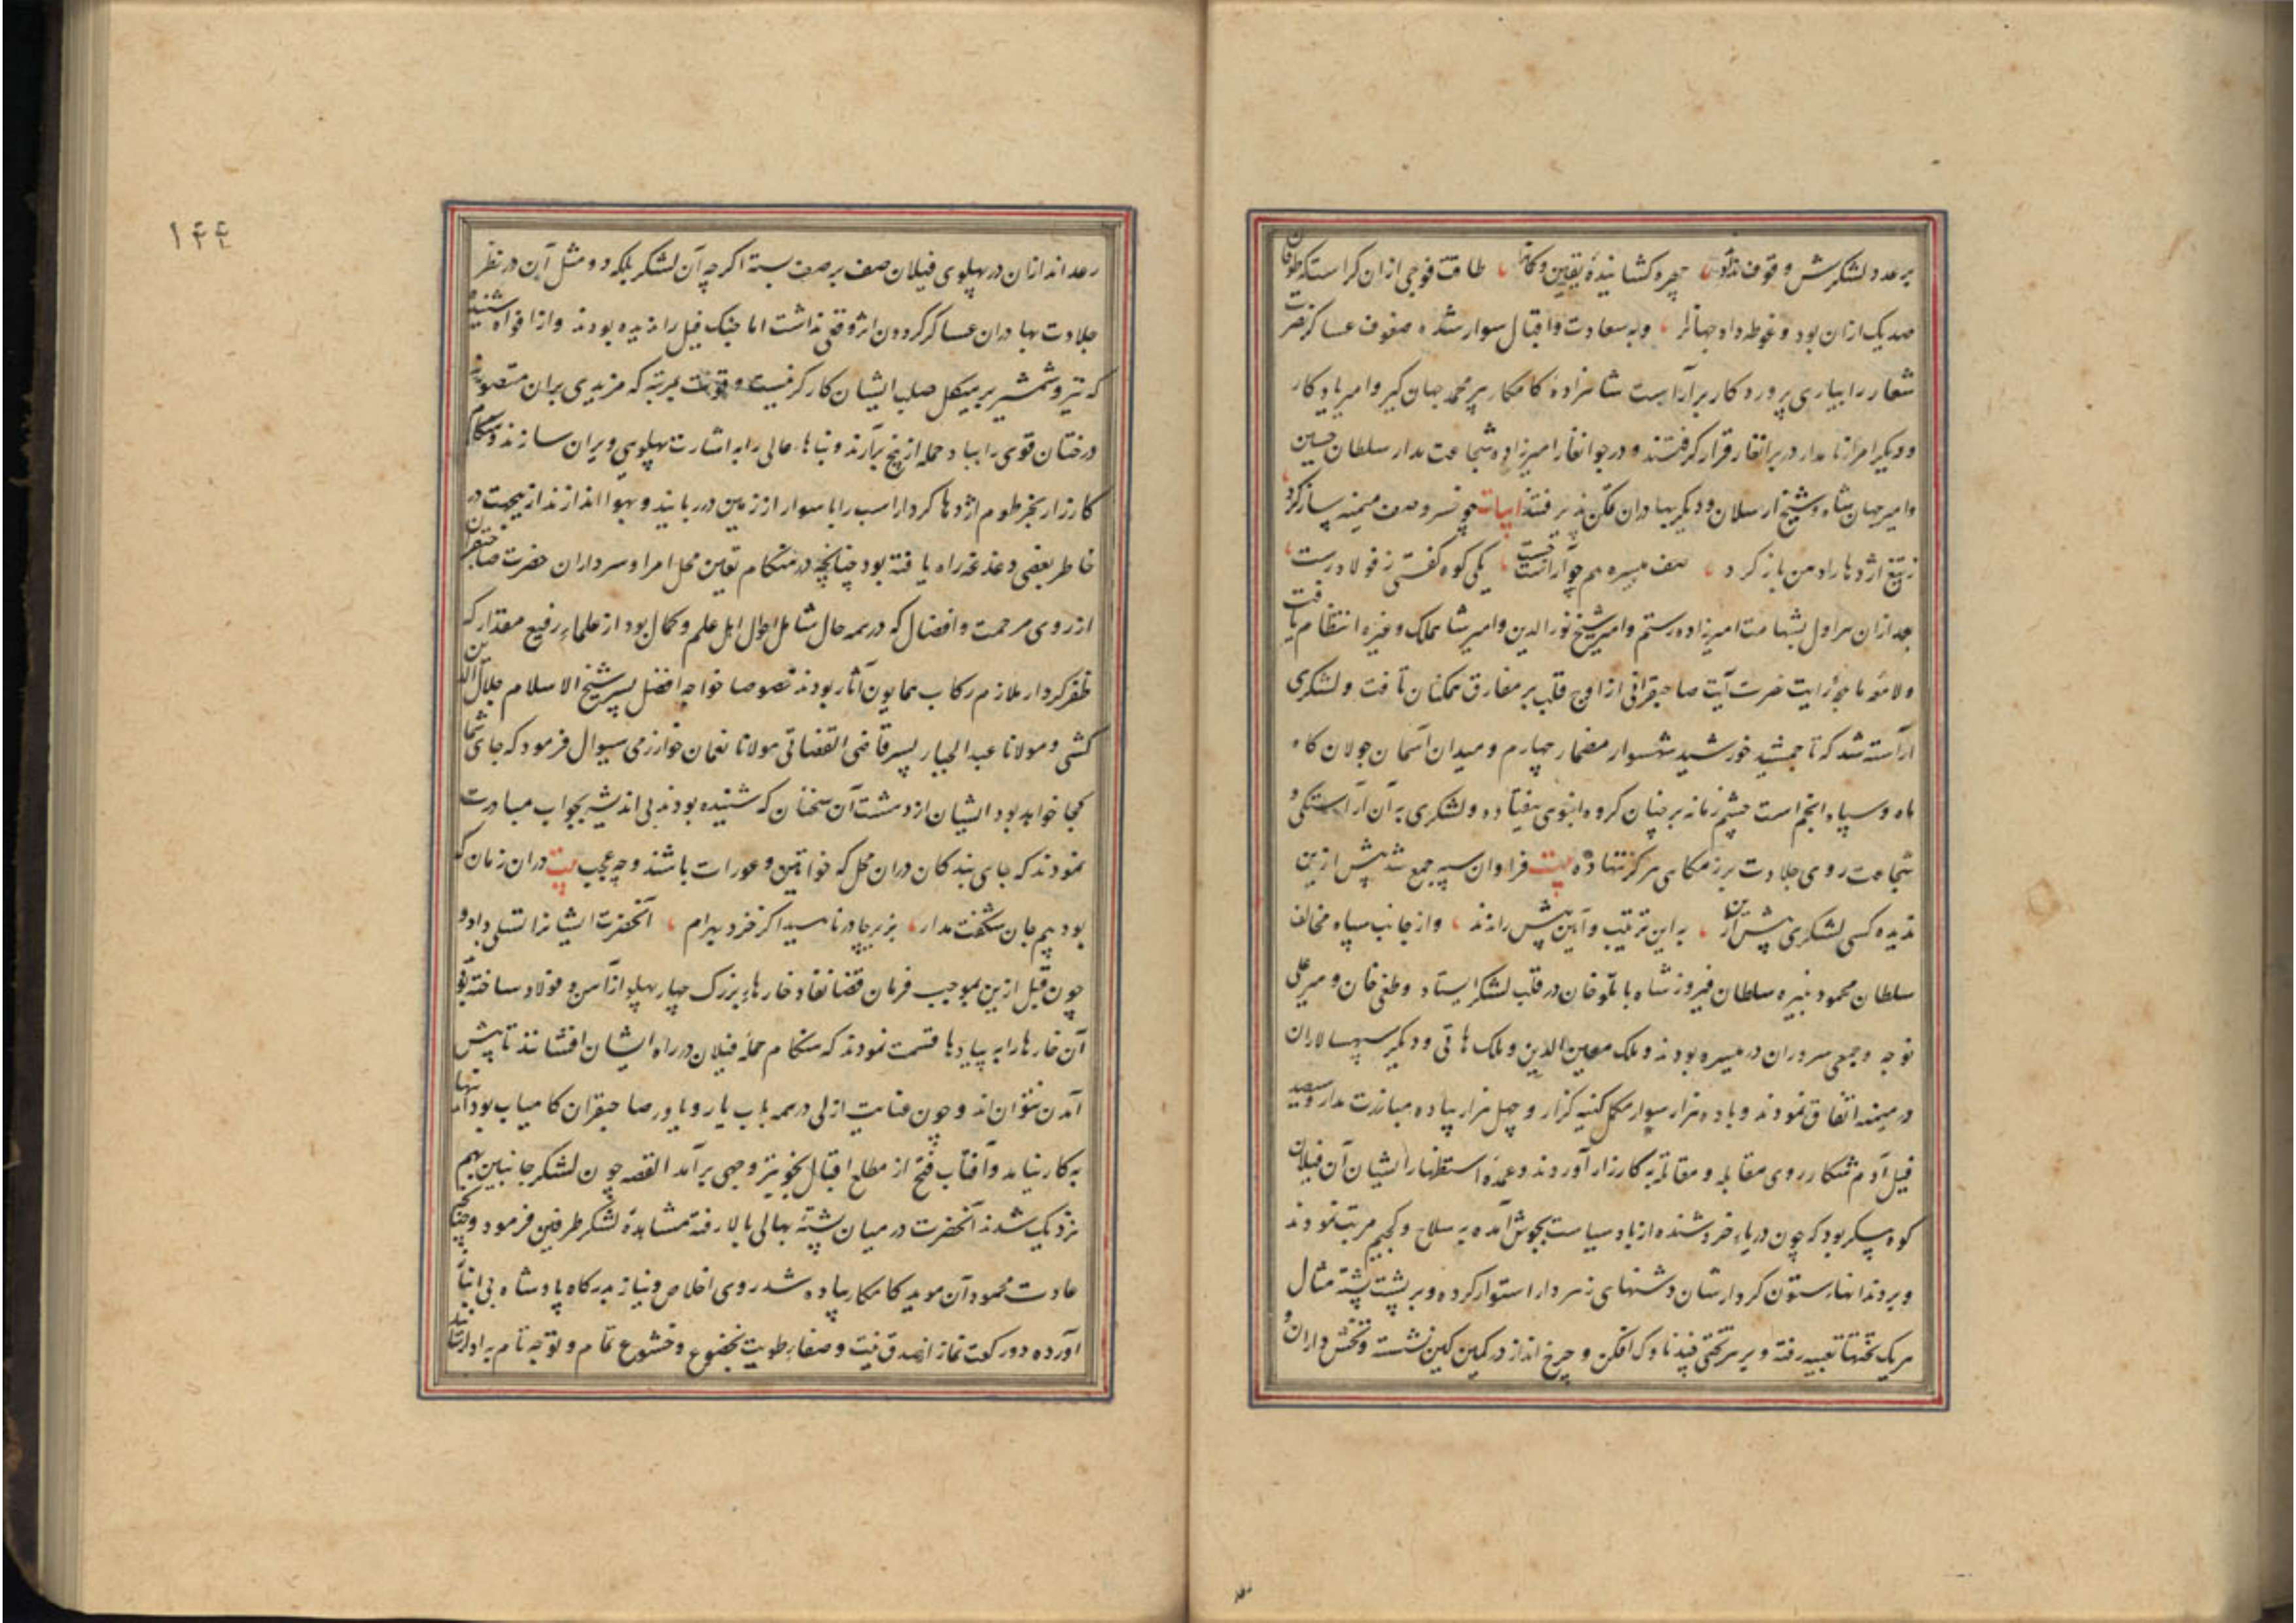 بر عدد لشکرش وقوف نداند چهره کشاینده یقین و کمان طاقت فوجی ازان کراستکه طوفان
صد یک ازان بود و غوطه داد جهانرا و به سعادت و اقبال سوار شده صفوف عساکر نصرت
شعار را بیاری پروردکار برآراست شاهزاده کامکار پیر محمد جهان کیر و امیر یادکار
و دیکر امراء نامدار در برانغار قرار کرفتند و در جوانغار امیرزاده شجاعت مدار سلطان حسین
و امیر جهان شاه و شیخ ارسلان و دیکر بهادران تمکن پذیرفتند ابیات چو خسرو صف میمنه ساز کرد
ز تیغ اژدها را دهن باز کرد صف میسره هم چو آراست چست یکی کوه کفتی ز فولاد رست
بعد ازان هراول بشهامت امیرزاده رستم و امیر شیخ نور الدین و امیر شاهملک و غیره انتظام یافت
ولامعه ماهچه رایت نصرت آیت صاحبقرانی از اوج قلب بر مفارق ممکنان تافت و لشکری
آراسته شد که تا جمشید خورشید شهسوار مضمار چهارم و میدان آسمان جولان کاه
ماه و سپاه انجم است چشم زمانه بر چنان کروه انبوهی نیفتاده و لشکری به آن آراستکی و
شجاعت روی جلادت برزمکاهی هرکز ننهاده بیت فراوان سپه جمع شد پیش ازین
ندیده کسی لشکری پیش ازین به این ترتیب و آیین پیش راندند و از جانب سپاه مخالف
سلطان محمود نبیره سلطان فیروز شاه با ملو خان در قلب لشکر ایستاد و طغی خان و میر علی
خوجه و جمعی سروران در میسره بودند و ملک معین الدین و ملک هاتی و دیکر سپهسالاران
در میمنه اتفاق نمودند و با ده هزار سوار مکمل کینه کزار و چهل هزار پیاده مبارزت مدار و سیصد
فیل آدم شکار روی مقابله و مقاتله به کارزار آوردند و عمده استظهار ایشان آن فیلان
کوه پیکر بود که چون دریاء خروشنده از باد سیاست بجوش آمده به سلاح و کجیم مرتب نمودند
و بر دندانهاء ستون کردارشان دشنهای زهر دار استوار کرده و بر پشت پشته مثال
هر یک تختها تعبیه رفته و بر هر تختی چند ناوک افکن و چرخ انداز در کمین کین نشسته و تخش داران و
رعد اندازان در پهلوی فیلان صف بر صف بسته اکرچه آن لشکر بلکه دو مثل آن در نظر
جلادت بهادران عساکر کردون اثر وقعی نداشت اما جنک فیل را ندیده بودند و از افواه شنیده
که تیر و شمشیر بر هیکل صلب ایشان کارکر نیست و قوت بمرتبه که مزیدی بران متصور نه
درختان قوی را بباد حمله از بیخ برآرند و بناهاء عالی را به اشارت پهلوی ویران سازند و هنکام
کارزار بخرطوم اژدها کردار اسب را با سوار از زمین در ربایند و بهوا اندازند ازینجهت در
خاطر بعضی دغدغه راه یافته بود چنانچه در هنکام تعین محل امرا و سرداران حضرت صاحبقران
از روی مرحمت و افضال که در همه حال شامل احوال اهل علم و کمال بود از علماء رفیع مقدار که
ظفر کردار ملازم رکاب همایون آثار بودند خصوصا خواجه افضل پسر شیخ الاسلام جلال الدین
کشی و مولانا عبد الجبار پسر قاضی القضاتی مولانا نعمان خوارزمی سیوال فرمود که جای شما
کجا خواهد بود ایشان از دهشت آن سخنان که شنیده بودند بی اندیشه بجواب مبادرت
نمودند که جای بندکان دران محل که خواتین و عورات باشند و چه عجب بیت دران زمان که
بود بیم جان شکفت مدار بزیر چادر ناهید اکر خزد بهرام آنحضرت ایشانرا تسلی داد و
چون قبل ازین بموجب فرمان قضا نفاذ خارهاء بزرک چهار پهلو از آهن و فولاد ساخته بود
آن خارها را به پیادها قسمت نمودند که هنکام حمله فیلان در راه ایشان افشانند تا پیش
آمدن نتوانند و چون عنایت ازلی در همه باب یار و یاور صاحبقران کامیاب بود آنها
به کار نیامد و آفتاب فتح از مطلع اقبال بخوبتر وجهی برآمد القصه چون لشکر جانبین بهم
نزدیک شدند آنحضرت در میان پشته بهالی بالا رفته مشاهده لشکر طرفین فرمود و چنانکه
عادت محمود آن موید کامکار پیاده شد روی اخلاص و نیاز بدرکاه پادشاه بی انباز
آورده دو رکعت نماز از صدق نیت و صفاء طویت بخضوع و خشوع تمام و توجه تام به ادا رسانید
۱۴۴